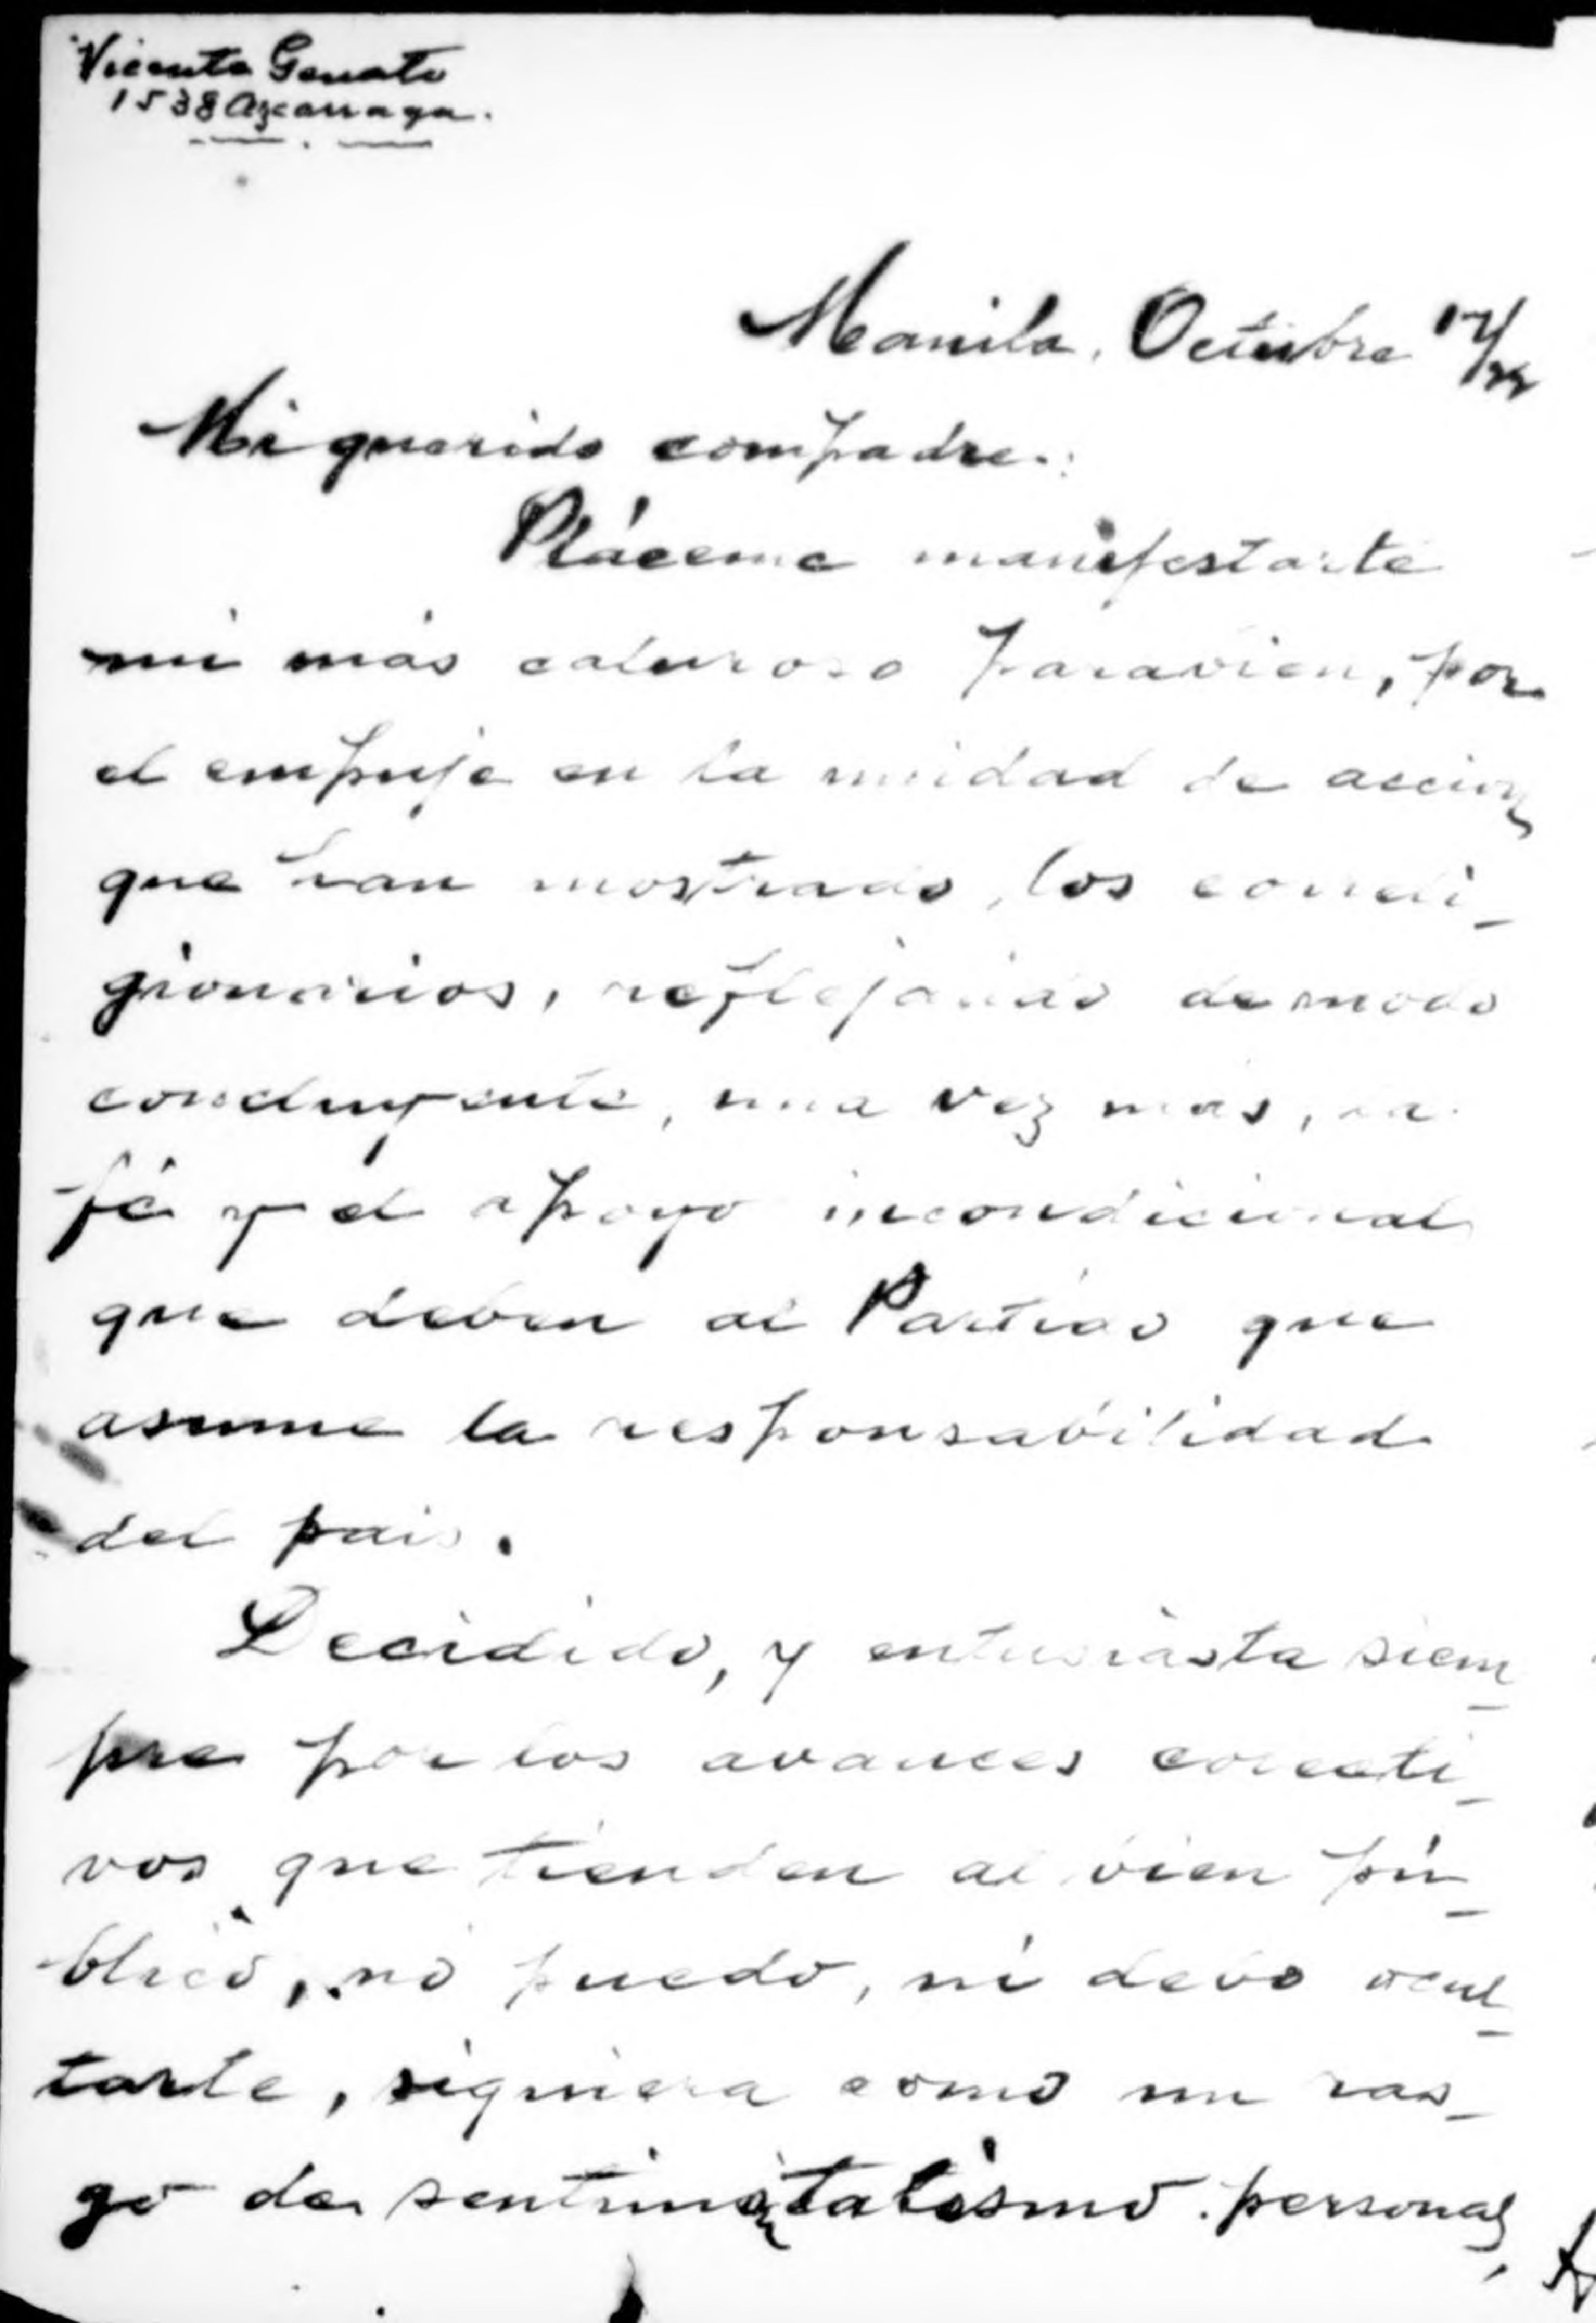 Vicente Genato
1538 Azcarraga.
Manila, Octubre 17/22
Mi querido compadre:
Pláceme manifestarte
mi más caluroso paravien, por
el empuje en la unidad de accion
que han mostrado, los correli-
gionarios, reflejando de modo
concluyente, una vez mas, la
fé y el apoyo incondicional
que deben al Partido que
asume la responsabilidad
del pais.
Decidido, y entusiasta siem-
pre por los avances colecti-
vos que tienden al bien pú-
blico, no puedo, ni debo ocul-
tarte, siquiera como un ras-
go de sentimentalismo personal,